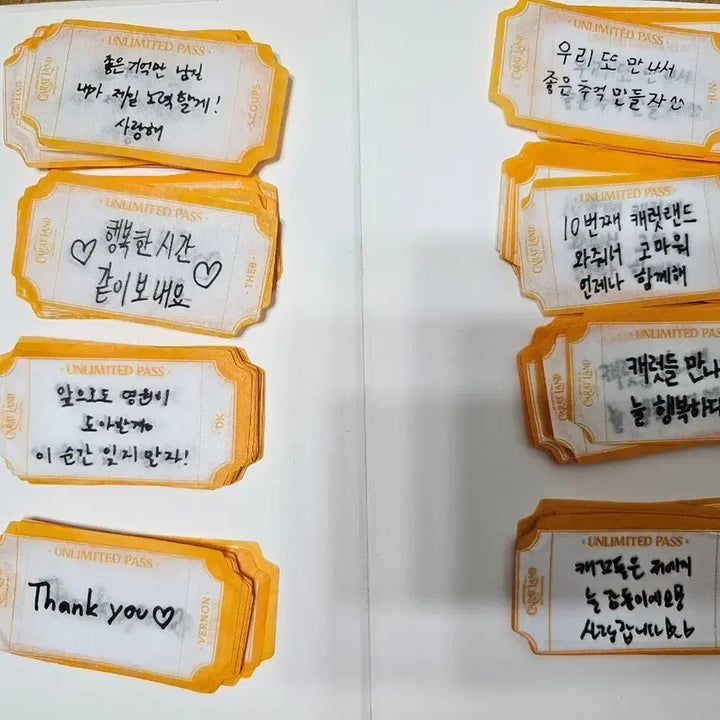 UNLIMITED PASS
CARAT LAND
좋은 기억만 남길
내가 제일 노력할게!
사랑해
S.COUPS
UNLIMITED PASS
CARAT LAND
행복한 시간
같이 보내요
THE8
UNLIMITED PASS
CARAT LAND
앞으로도 영원히
이 순간 잊지 말자!
DK
UNLIMITED PASS
Thank you♡
VERNON
UNLIMITED PASS
CARAT LAND
우리 또 만나서
좋은 추억 만들자
JUN
UNLIMITED PASS
CARAT LAND
10번째 캐럿랜드
와줘서 고마워
언제나 함께해
UNLIMITED PASS
CARAT LAND
캐럿들 만나
늘 행복하다
UNLIMITED PASS
CARAT LAND
늘 감동이에요
사랑합니다